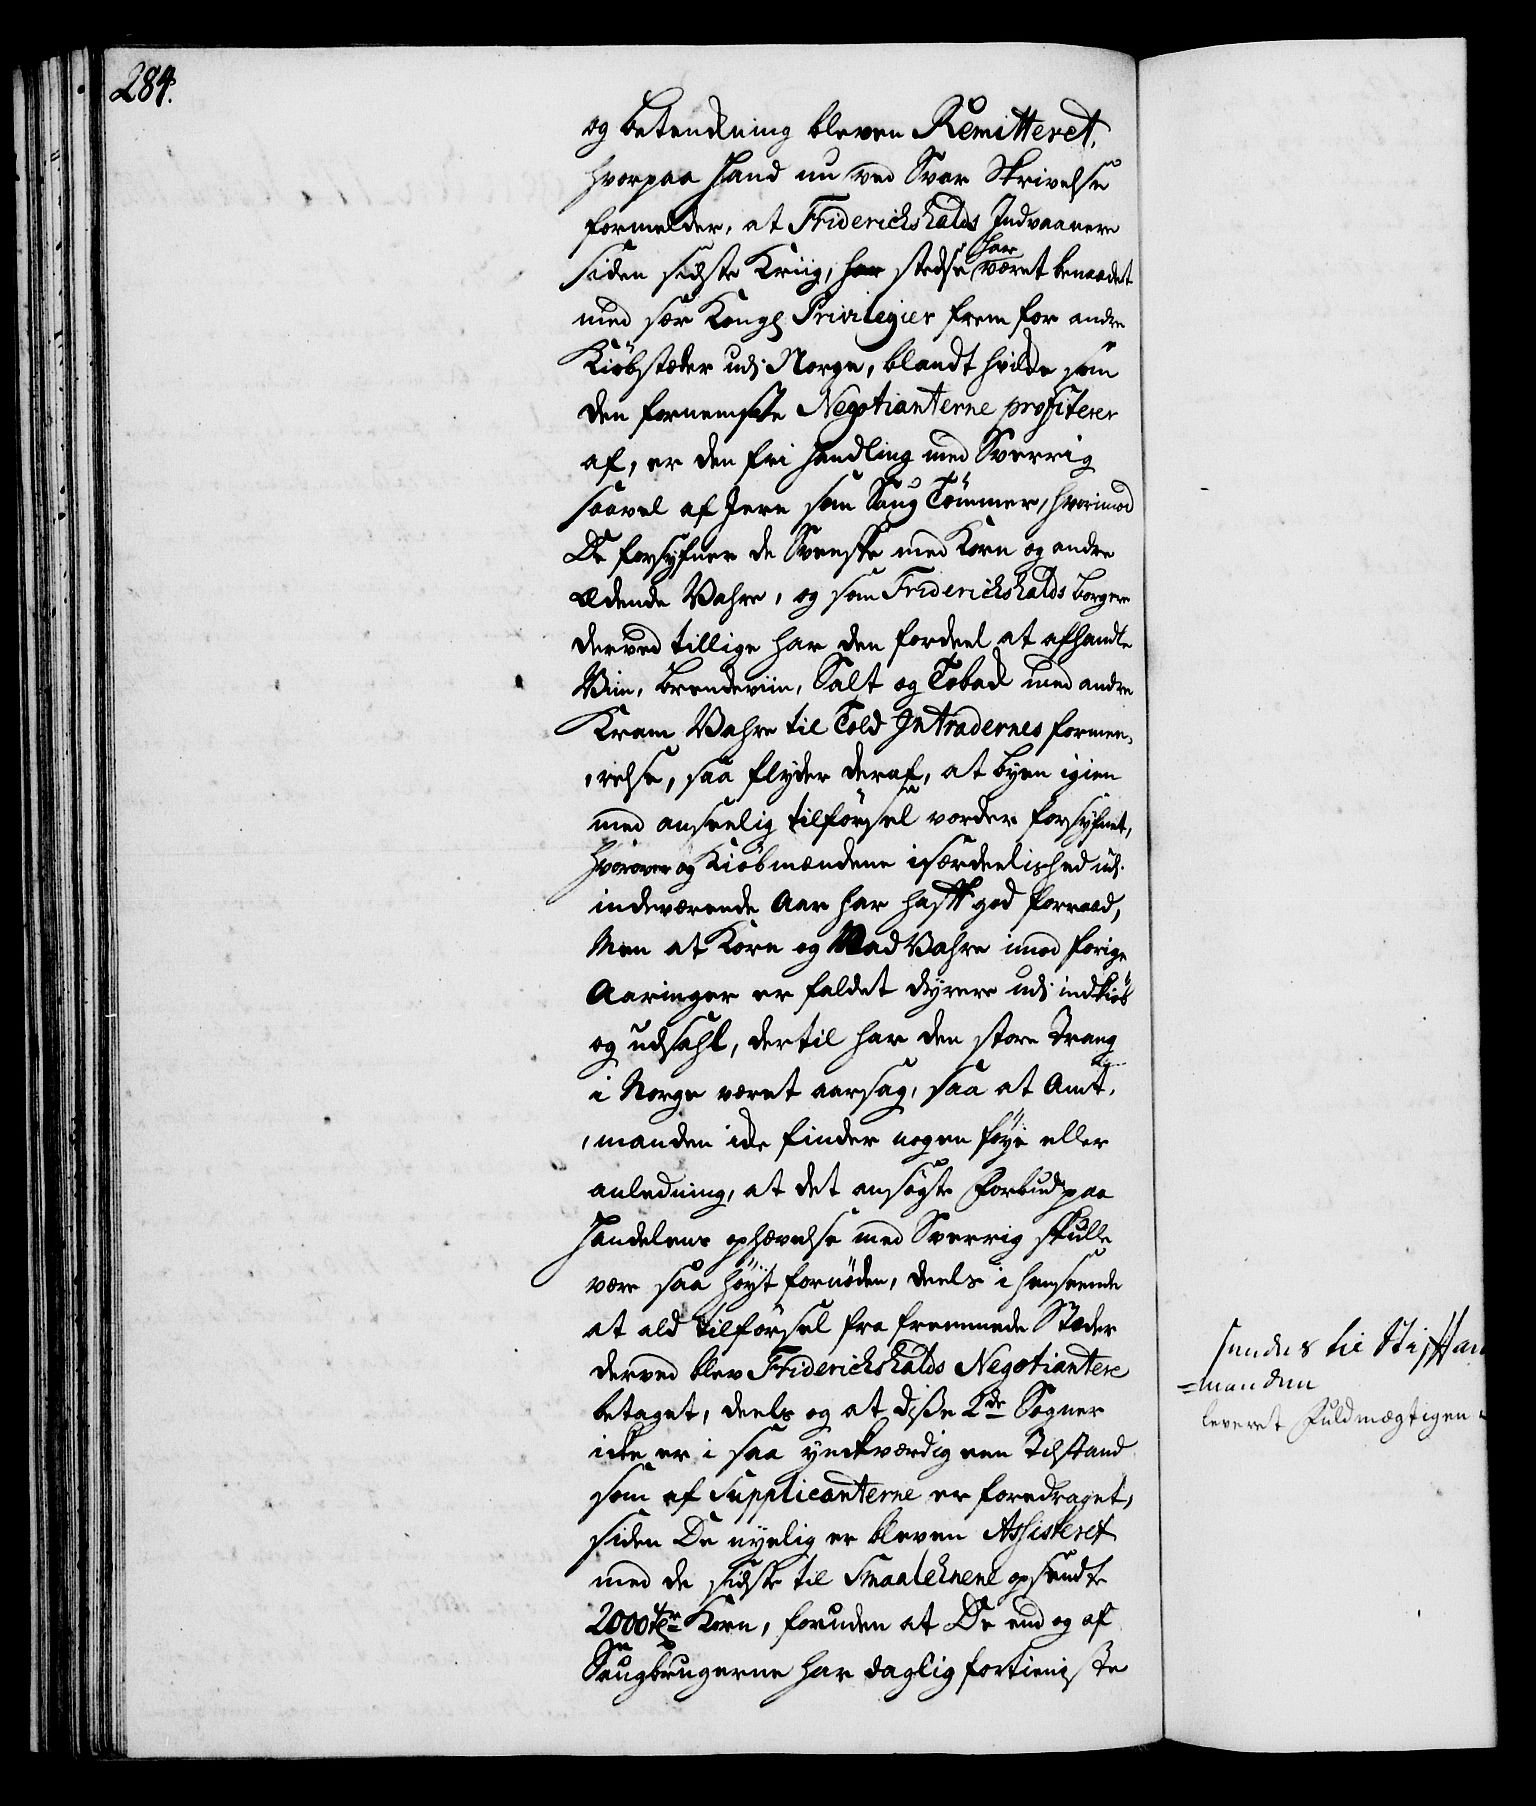 284.
og betenckning bleven Remitteret,
hvorpaa Hand nu ved Svar Skrivelse
formelder, at Friderichshalds Indvaanere
siden sidste Kriig, har stedse har været benaadet
med sær Kongl Privilegier frem for andre
Kiöbstæder udi Norge, blandt hvilcke som
den fornemste Negotianterne profiterer
af, er den fri Handling med Sverrig
saavel af Jern som Saug Tömmer, hvorimod
De forsyfner de Svenske med Korn og andre
Ædende Vahre, og som Friderichshalds borgere
derved tillige har den fordeel at afhandle
Viin, brendeviin, Salt og Toback med andre
Kram Vahre til Told Intradernes formee,
,relse, saa flyder deraf, at byen igien
med anseelig tilförsel vorder forsyfnet,
hvorover og Kiöbmændene isærdeelished udi
indeværende Aar har hafft god forraad,
Men at Korn og Mad Vahre imod forige
Aaringer er faldet dyrere udi indkiöb
og udsahl, dertil har den store Trang
i Norge været aarsag, saa at Amt,
,manden icke finder nogen föye eller
anledning, at det ansögte forbud paa
Handelens ophævelse med Sverrig skulle
være saa höyt fornöden, deels i henseende
at ald tilförsel fra fremmede Stæder
derved blev Friderichshalds Negotiantere
betaget, deels og at disse 2de Sogner
icke er i saa ynckværdig een Tilstand
som af Supplicanterne er foredraget,
siden De nyelig er bleven Assisteret
med de sidste til Smaalehnene opsendte
2000 tr Korn, foruden at De end og af
Saugbrugerne har daglig fortieniste
sendes til Stifftam
=manden
leveret Fuldmægtigen